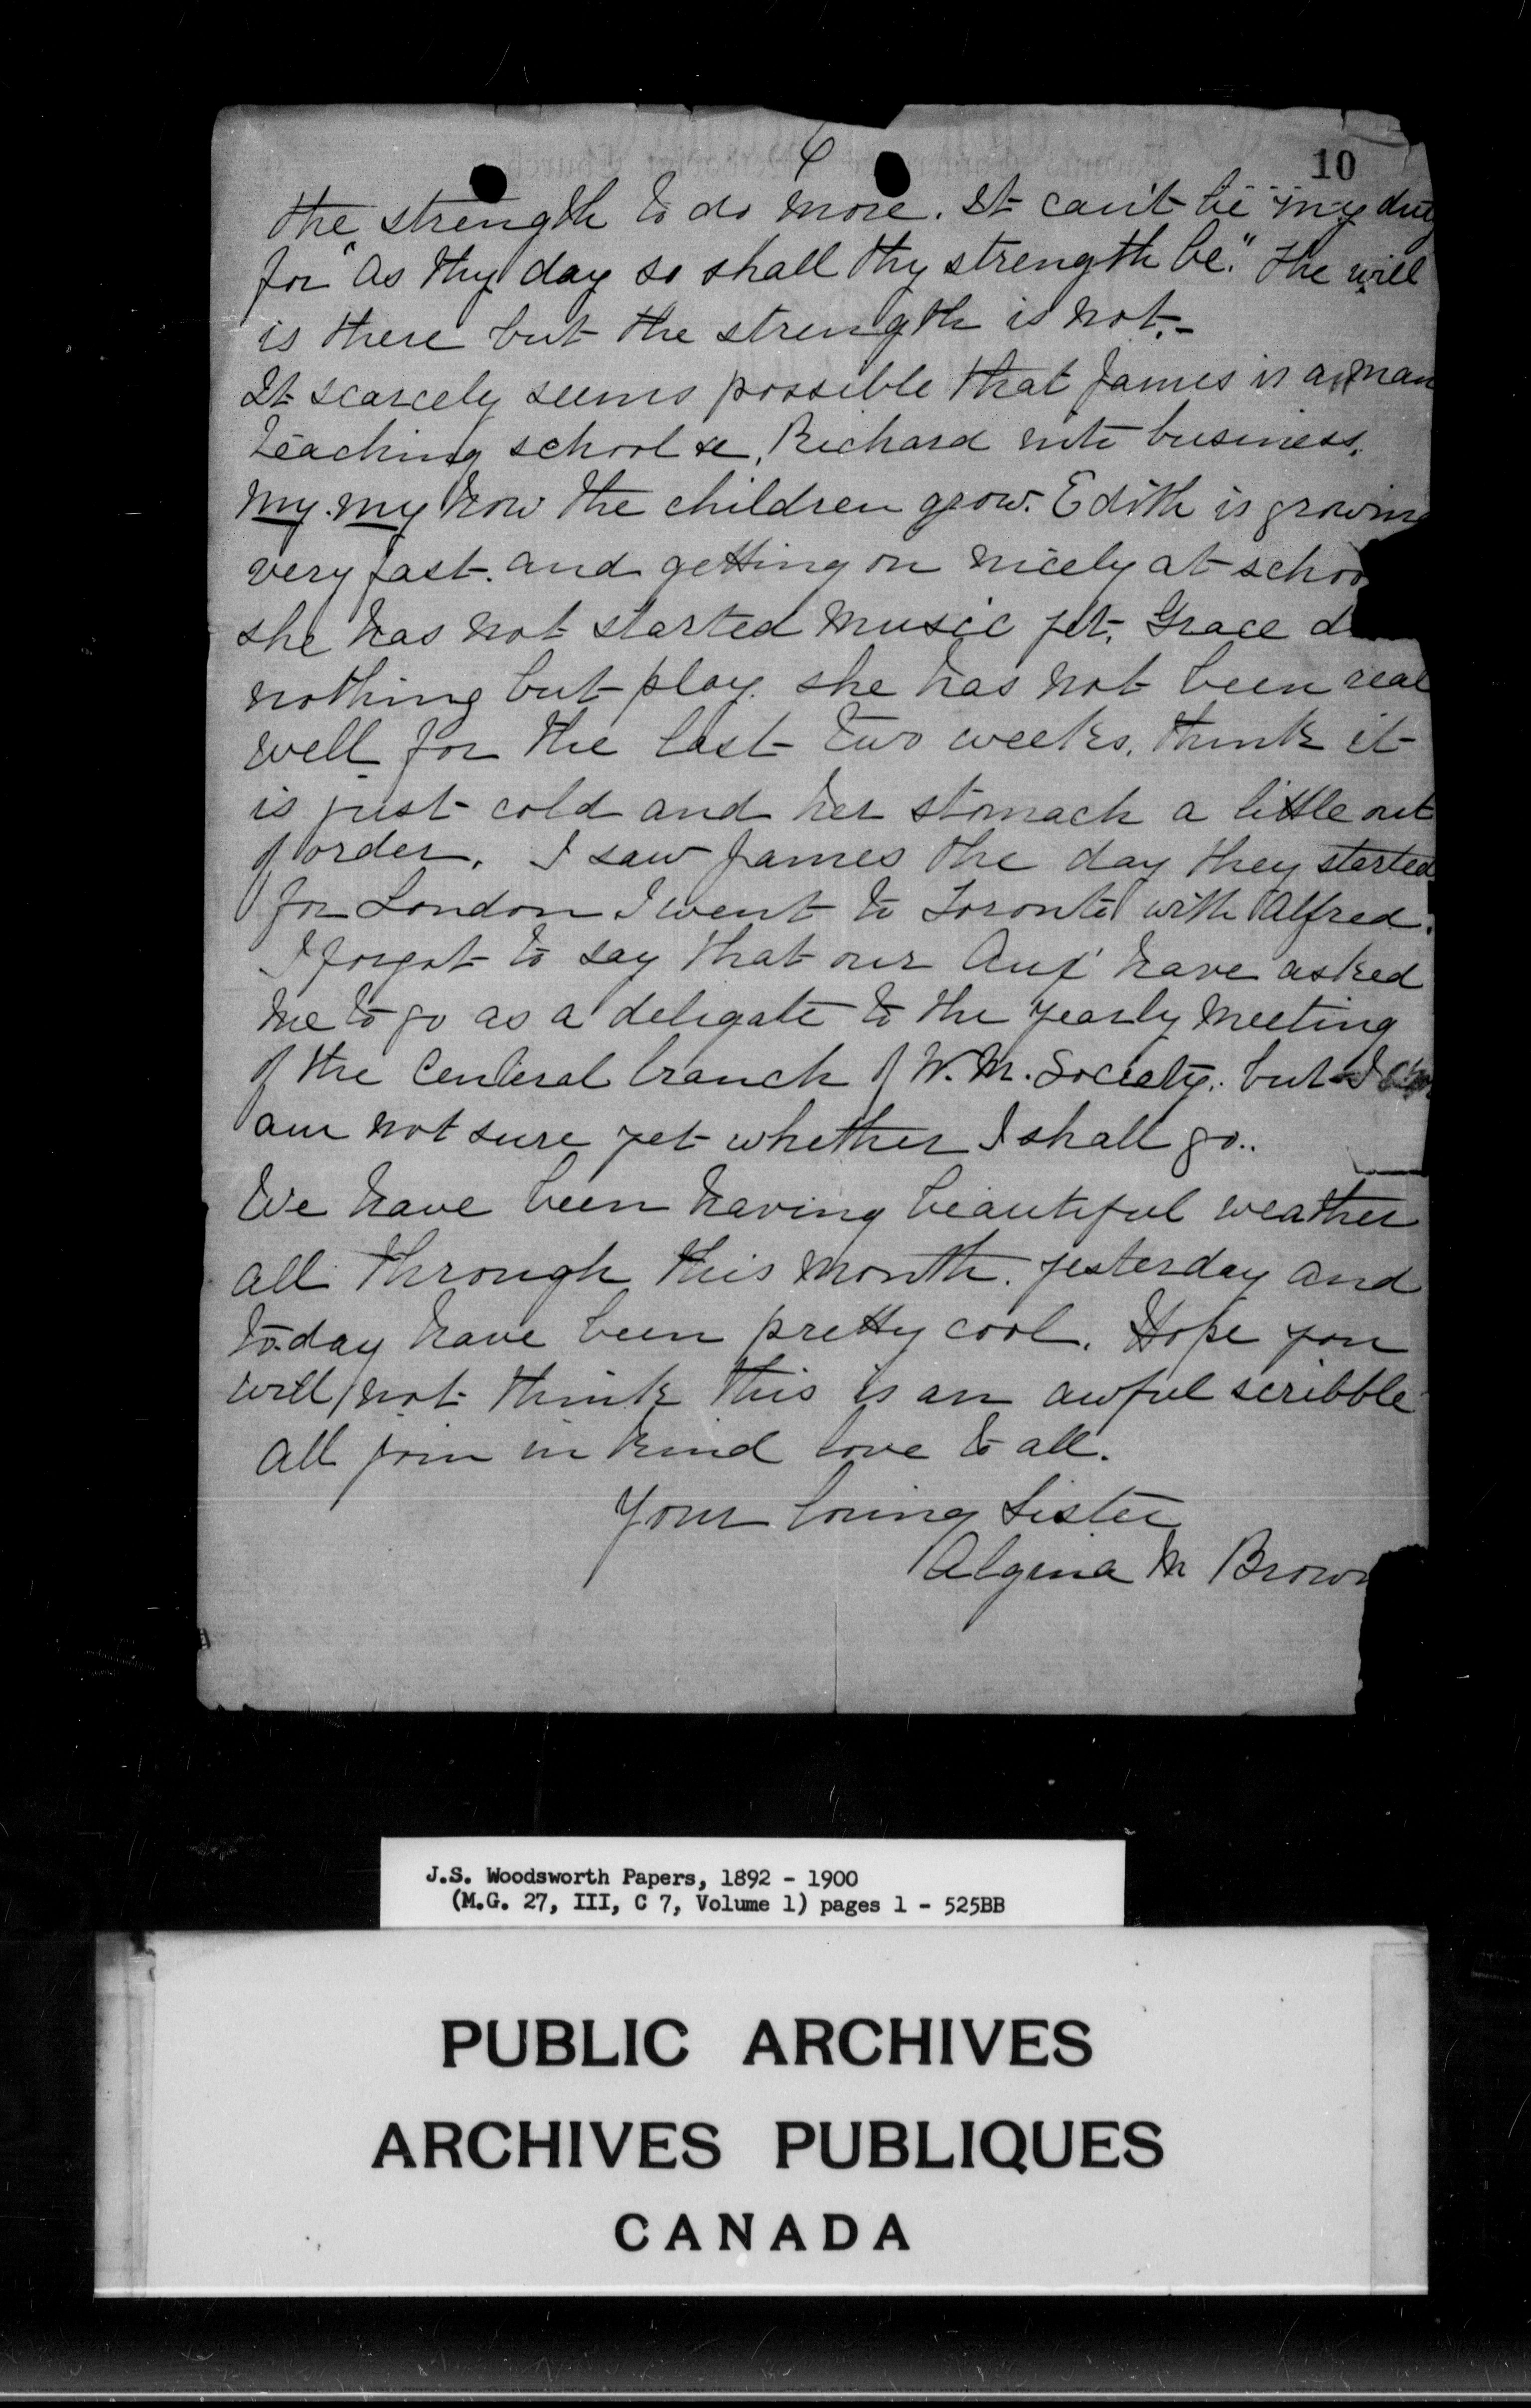 6
10
the strength to do more. It can't be my du
for "As thy day so shall thy strength be." The will
is there but the strength is not.-
It scarcely seems possible that James is a man
teaching school &c, Richard into business.
my. my how the children grow. Edith is growing
very fast. and getting on nicely at schoo
she has not started music yet, Grace d
nothing but play. she has not been real
well for the last two weeks. think it
is just cold and her stomach a little out
of order. I saw James the day they started
for London I went to Toronto with Alfred.
I forgot to say that our Aux' have asked
me to go as a deligate to the yearly meeting
of the Centeral branch of W. M. Society. but I
am not sure yet whether I shall go..
We have been having beautiful weather
all through this month. yesterday and
to-day have been pretty cool. Hope you
will not think this is an awful scribble
All join in kind love to all.
Your loving Sister
Algina M Brown
J.S. Woodsworth Papers, 1892 - 1900
(M.G. 27, III, C 7, Volume 1) pages 1 - 525BB
PUBLIC ARCHIVES
ARCHIVES PUBLIQUES
CANADA